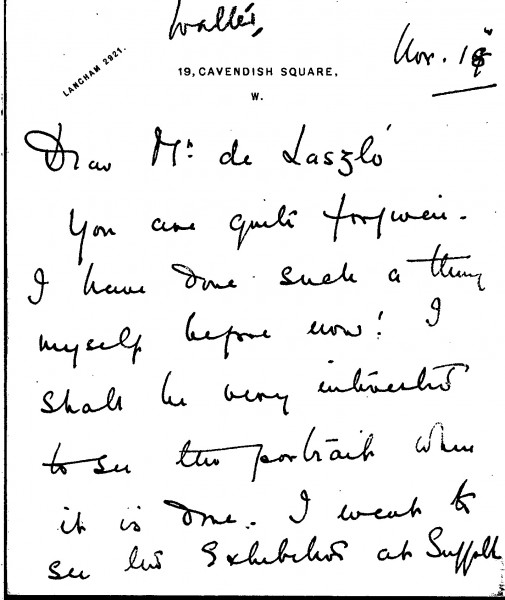 Wallis,
Nov. 18th
LANGHAM 2921.
19, CAVENDISH SQUARE,
W.
Dear Mr. de Laszló
You are quite forgiven.
I have done such a thing
myself before now! I
shall be very interested
to see the portrait when
it is done. I went to
see his Exhibition at Suffolk